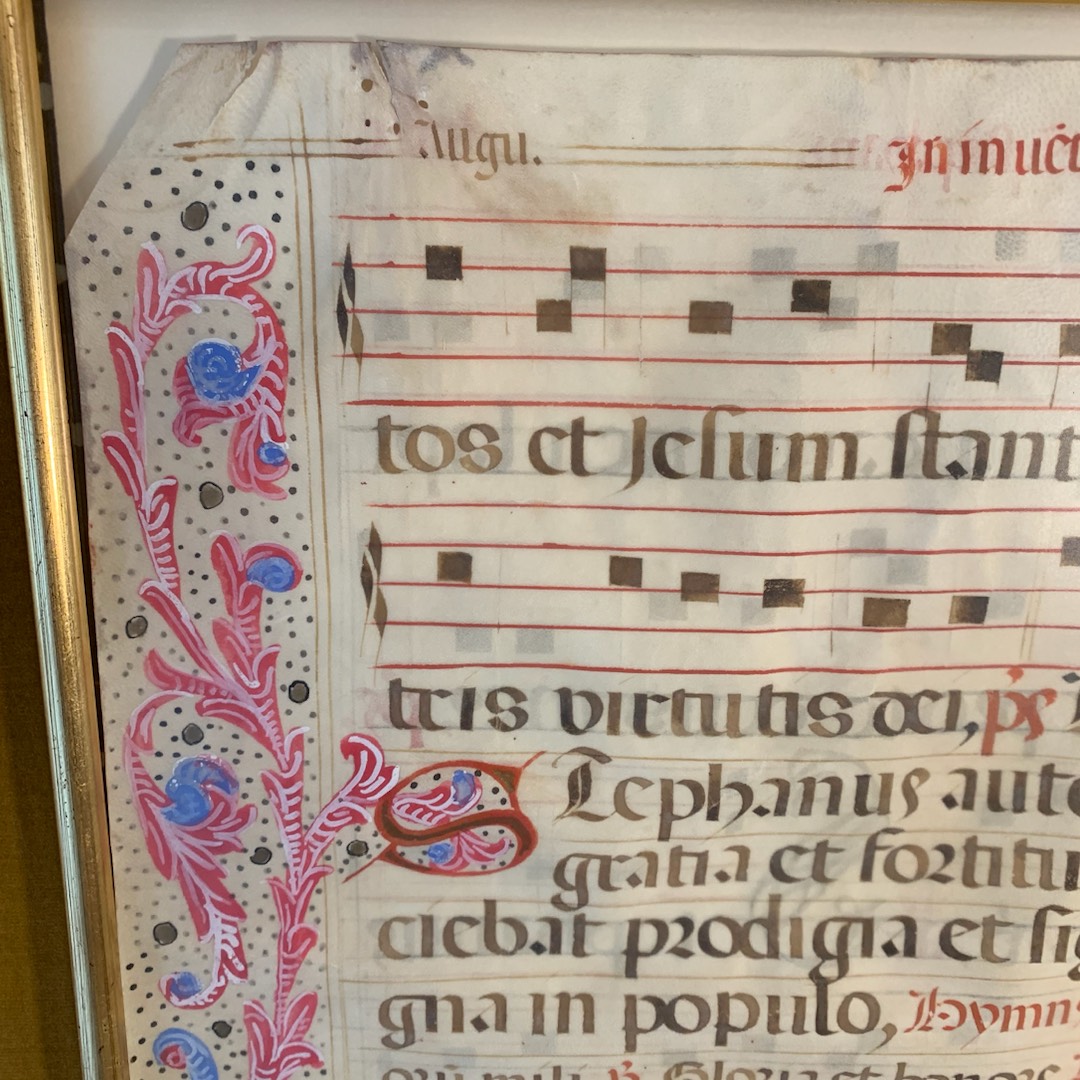 Augu. In inuēt
tos et Jesum stant
tris virtutis dei, ps
STephanus aute
gratia et fortitu
ciebat prodigia et sig
gna in populo, Hymn
Gloria et honore